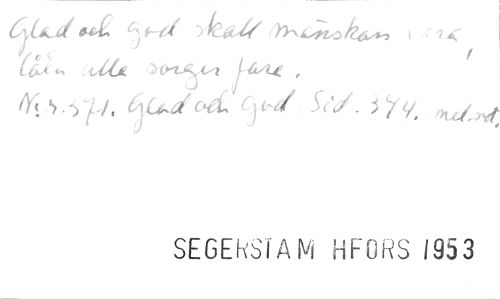 Glad och god skall mänskan vara,
låtn alla sorger fara.
N:r 371. Glad och god. Sid. 344. mel. not.
SEGERSTAM HFORS 1953